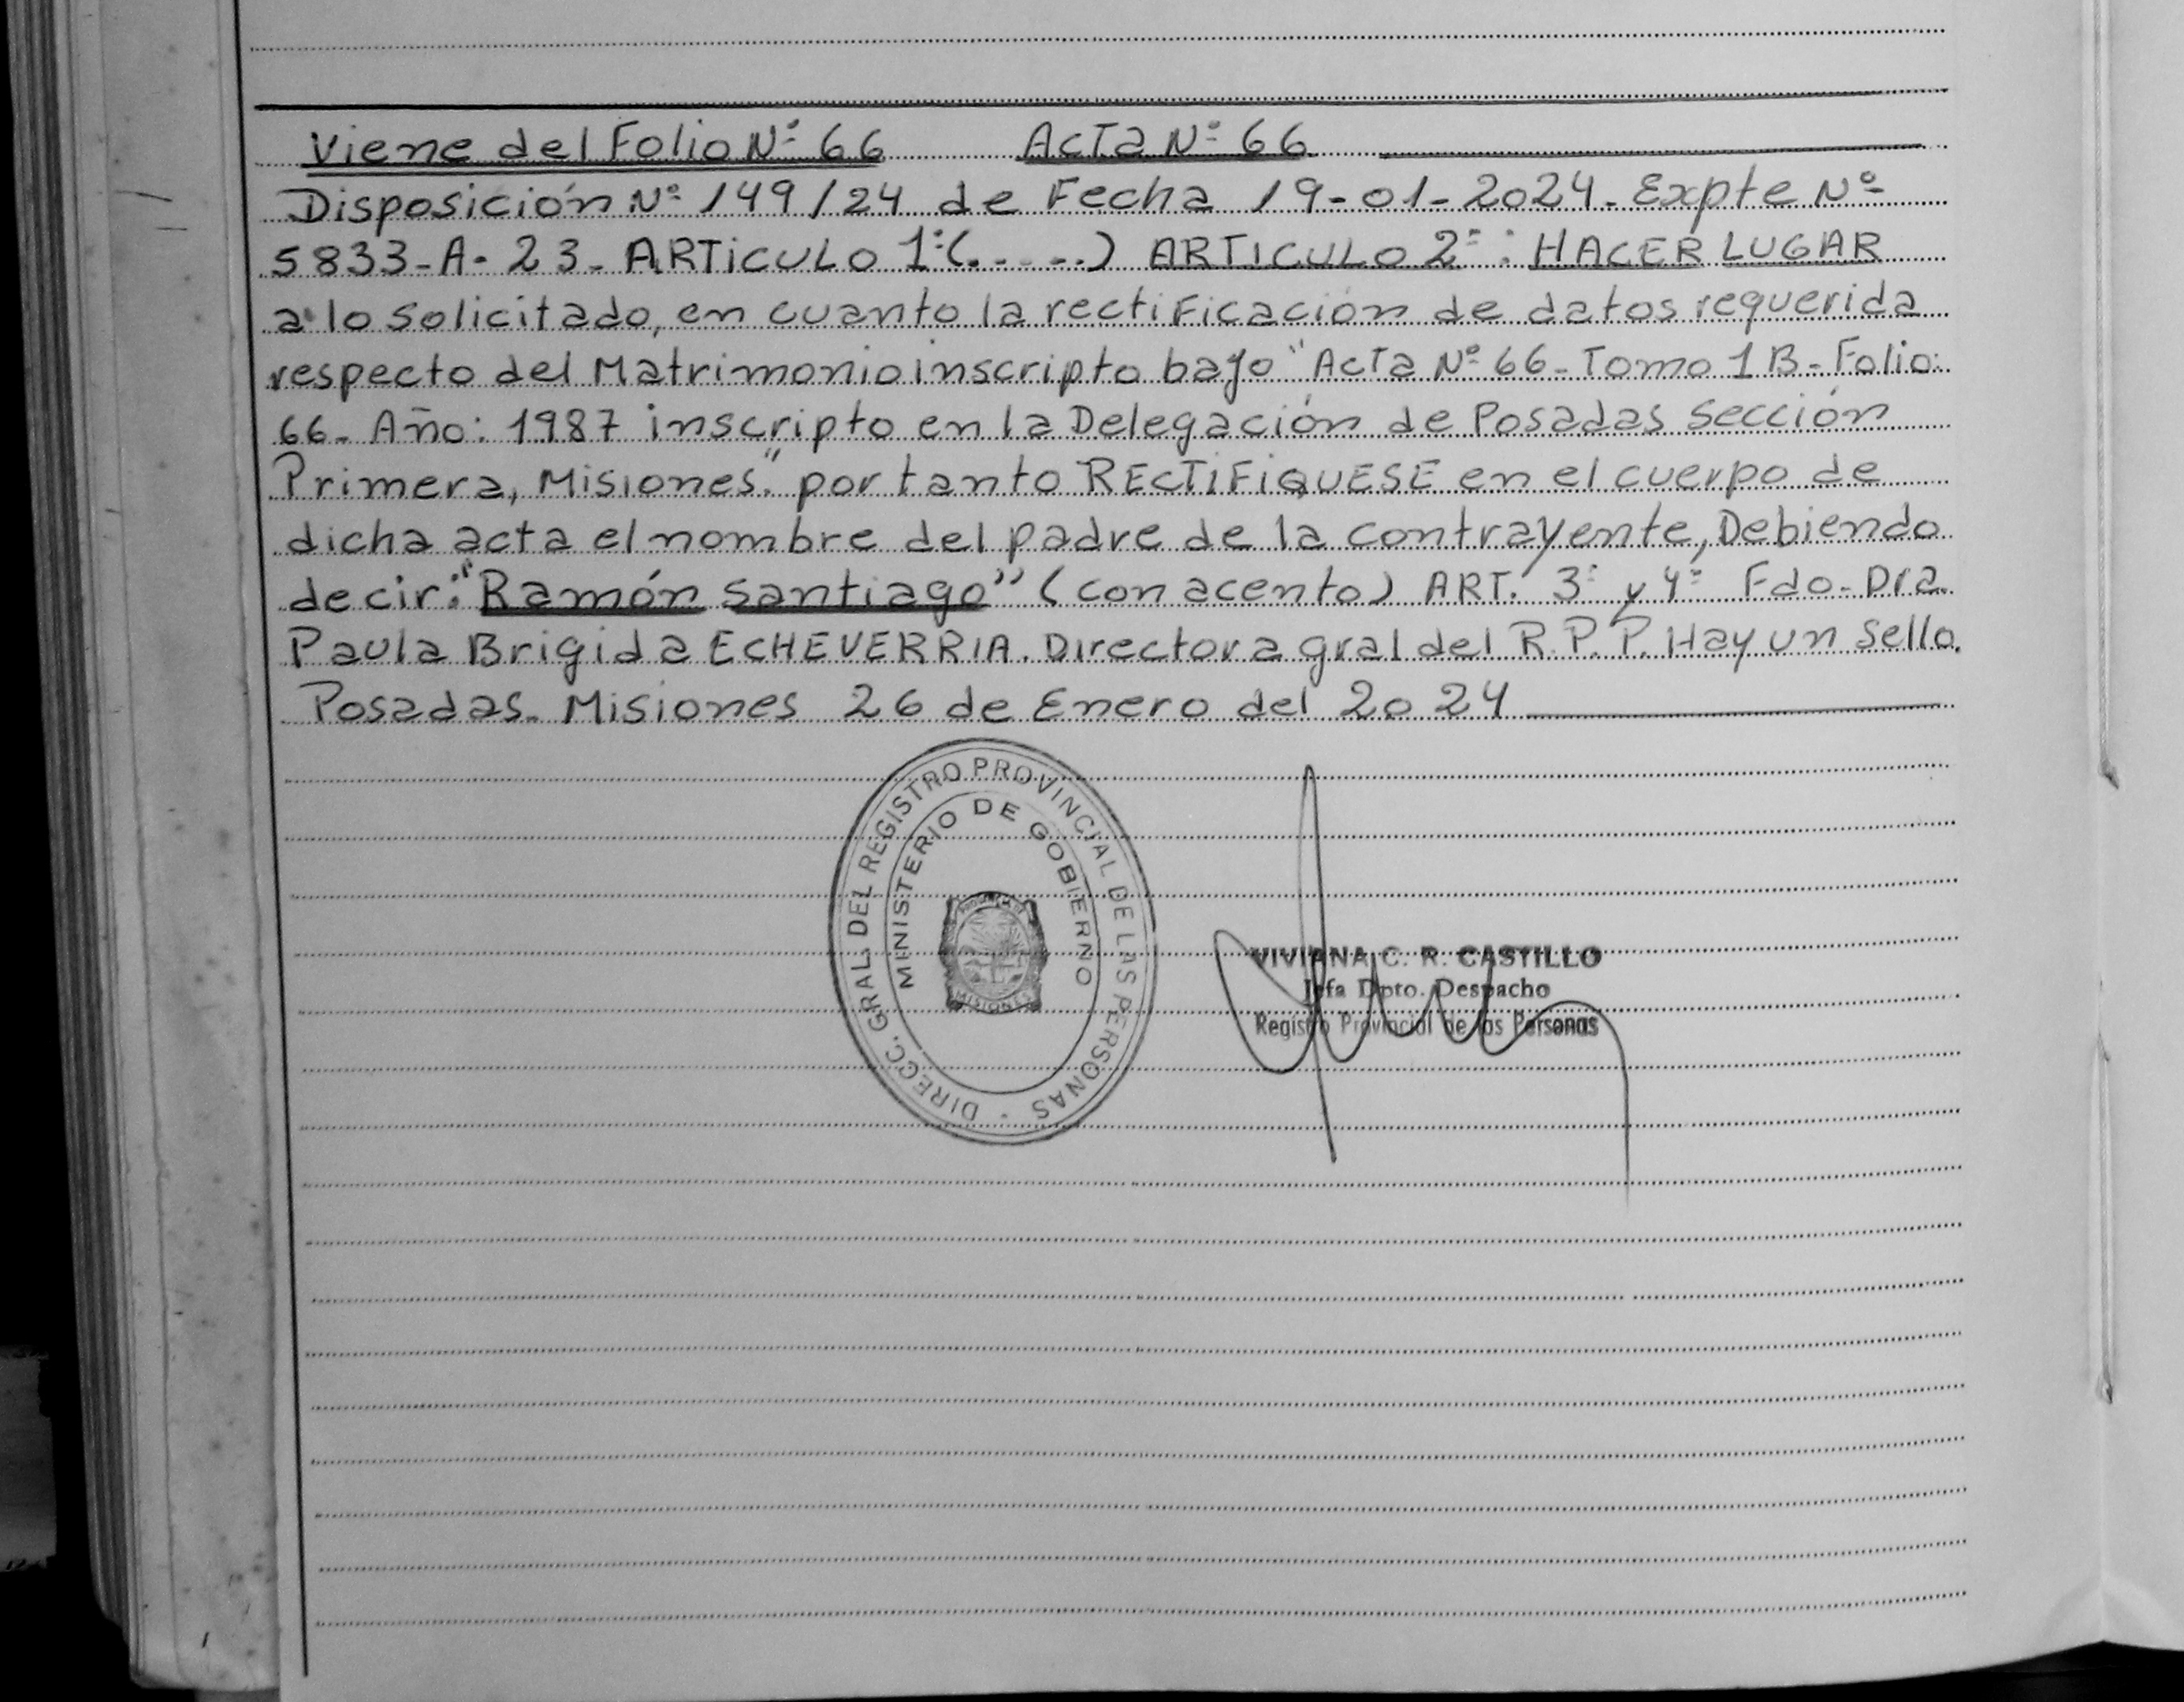 Viene del Folio Nº 66 Acta Nº 66
Disposición Nº 149/24 de Fecha 19-01-2024. Expte Nº
5833-A-23- ARTICULO 1º(.....) ARTICULO 2º: HACER LUGAR
a lo solicitado, en cuanto la rectificación de datos requerida
respecto del Matrimonio inscripto bajo "Acta Nº 66- Tomo 1 B- Folio:
66- Año: 1987 inscripto en la Delegación de Posadas Sección
Primera, Misiones" por tanto RECTIFIQUESE en el cuerpo de
dicha acta el nombre del padre de la contrayente, Debiendo
decir: "Ramón Santiago" (con acento) ART. 3º y 4º Fdo- Dra.
Paula Brigida ECHEVERRIA. Directora gral del R.P.P. Hay un Sello.
Posadas- Misiones 26 de Enero del 2024
DIRECC. GRAL. DEL REGISTRO PROVINCIAL DE LAS PERSONAS -
MINISTERIO DE GOBIERNO
PROVINCIA DE
MISIONES
VIVIANA C. R. CASTILLO
Jefa Dpto. Despacho
Registro Provincial de las Personas